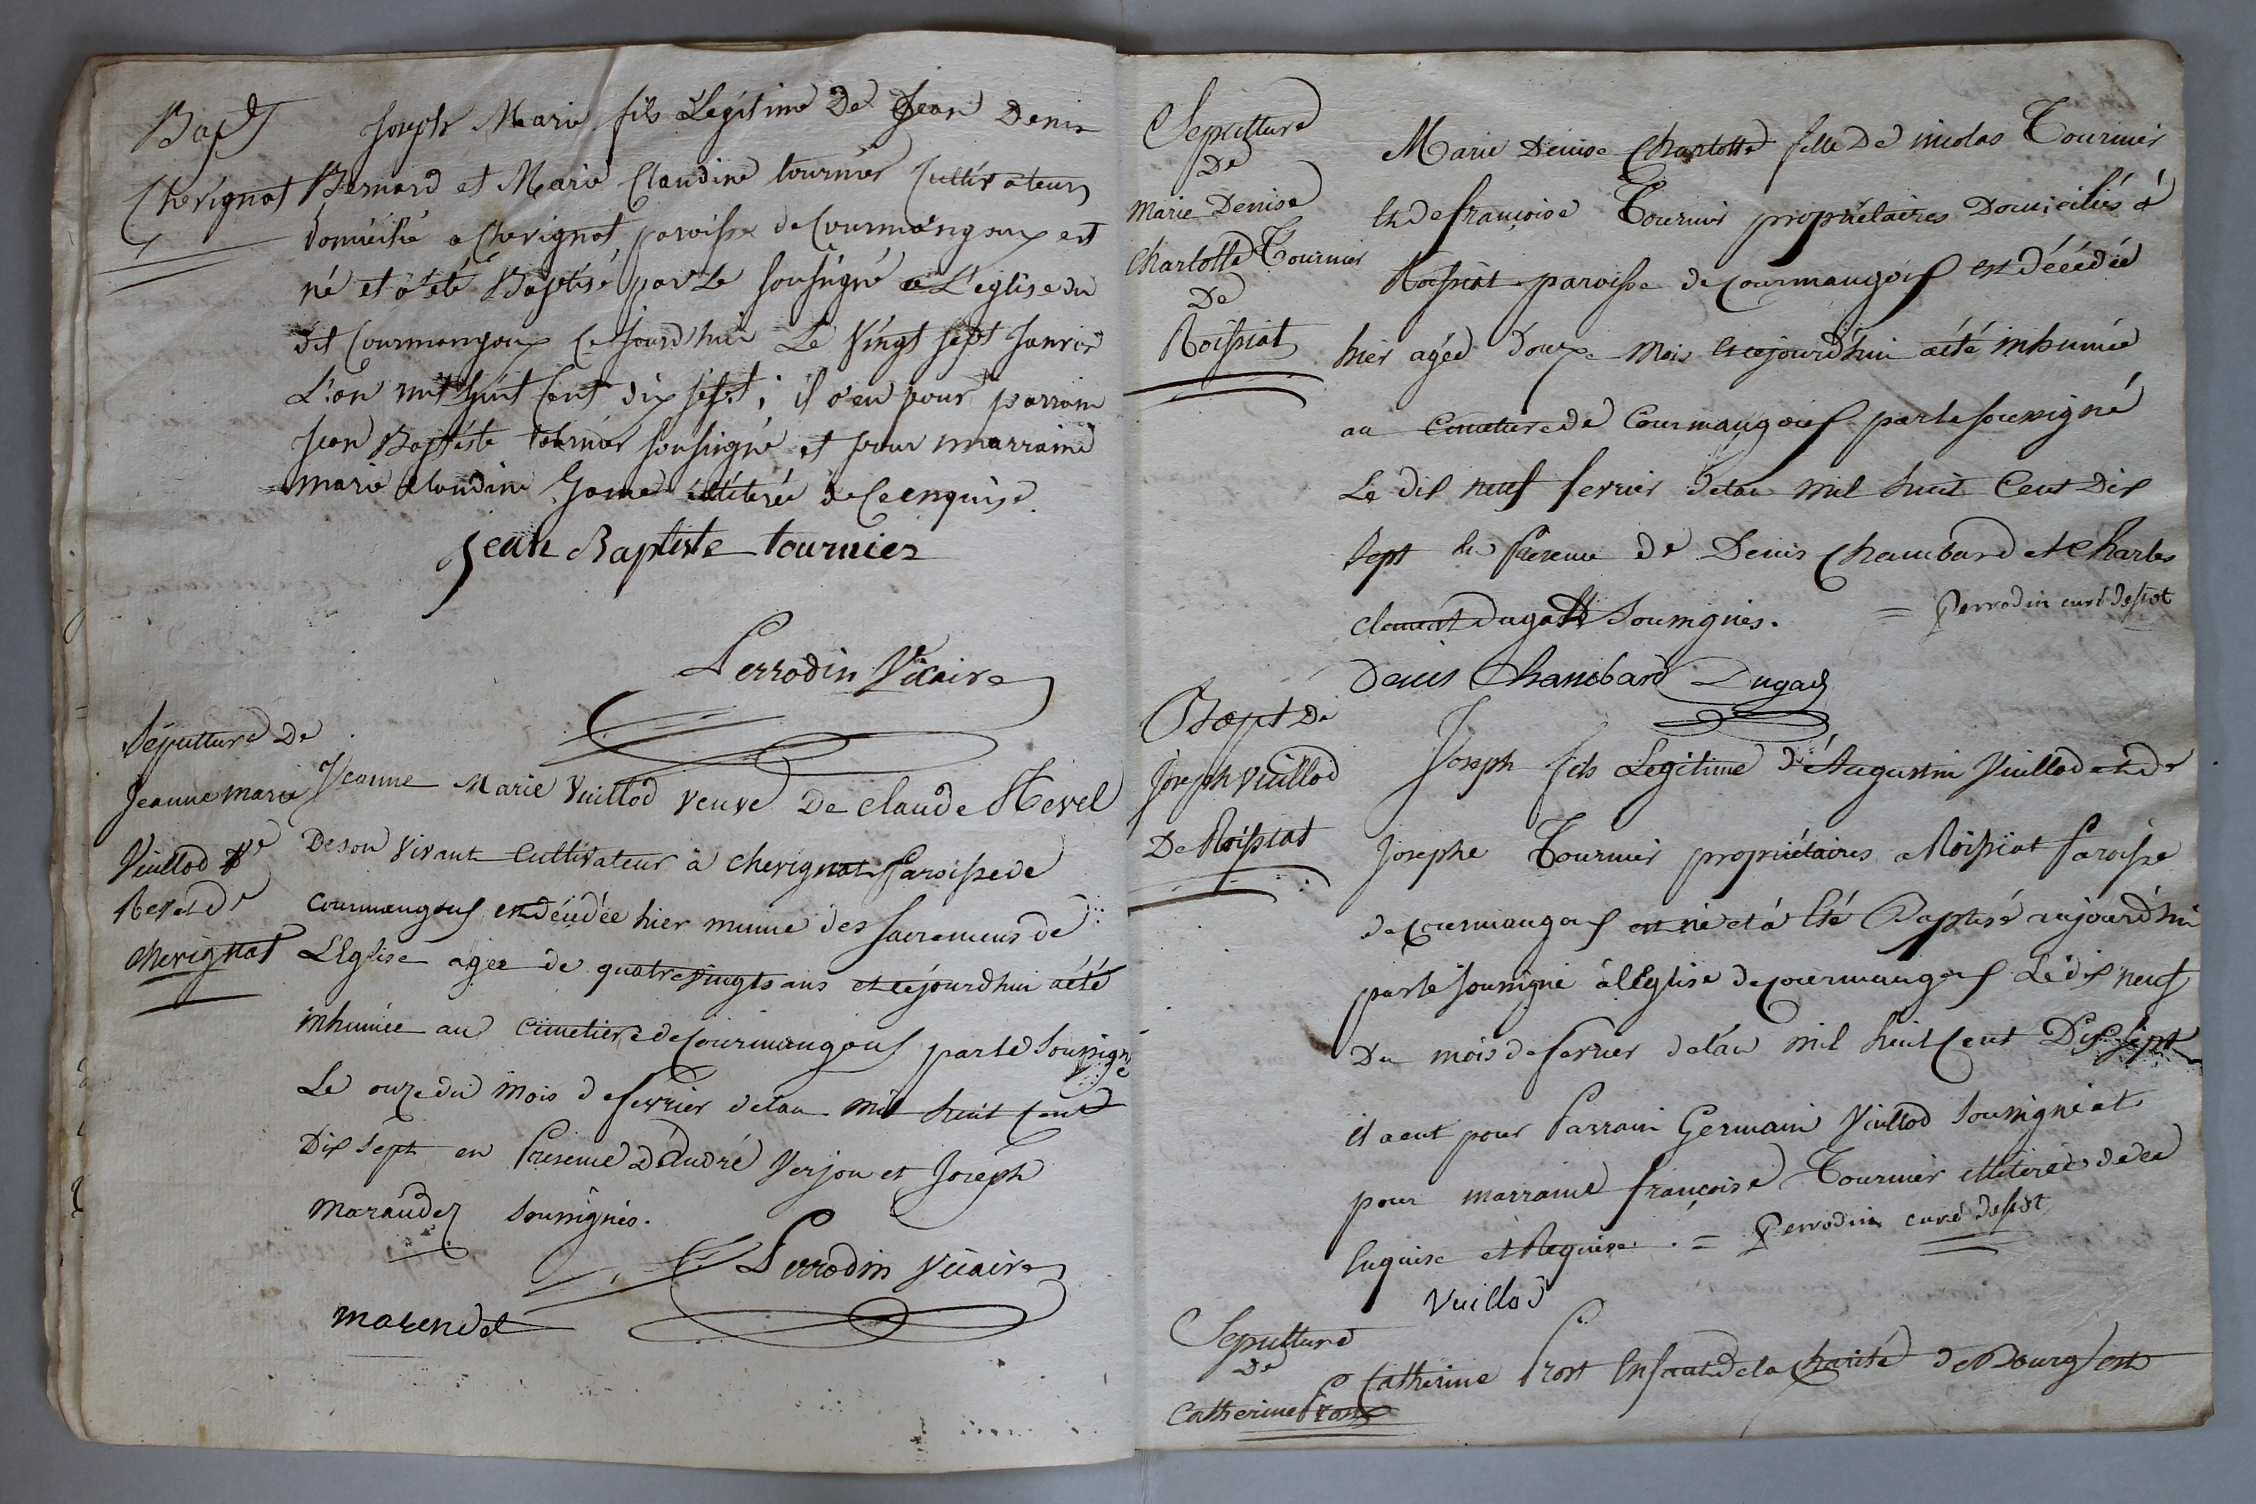 Bapt
Cherignat
Joseph Marie fils Legitime De Jean Denis
Bernard et Marie Claudine tournier Cultivateurs
domicilié a Cherignat paroisse de Courmangoux est
né et a été Baptisé par Le Soussigné a L'eglise du
dit Courmangoux Ce Jourd'hui Le Vingt sept Janvier
L'an mil huit Cent dix sept ; il a eu pour parrain
Jean Baptiste tournier soussigné et pour marraine
marie Claudine illiterée de Ce enquise.
Jean Baptiste tournier
Perrodin Vicaire
Sépulture De
Jeanne marie
Vuillod Ve
Revel de
Cherignat
Jeanne Marie Vuillod veuve De Claude Revel
De son vivant Cultivateur à Cherignat Paroisse de
Courmangous est décédée hier munie des Sacremens de
L'Eglise agée de quatre vingts ans et cejourdhui a été
inhumée au Cimetiere de Courmangous par le Soussigné
Le onze du mois de fevrier de lan mil huit Cent
Dix sept en Présence D'André Verjon et Joseph
Maraudez soussignés.
Perrodin Vicaire
marendet
Sepulture
De
Marie Denise
Charlotte Tournier
De
Roissiat
Marie Denise Charlotte fille De nicolas Tournier
et de françoise Tournier propriétaires Domiciliés à
Roissiat paroisse de Courmangous est décédée
hier agée douze mois et cejourd'hui a été inhumée
au Cimetiere de Courmangous par le soussigné
Le dix neuf fevrier de lan mil huit Cent Dix
sept en Présence De Denis Chambard et Charles
Clement Dugad Soussignés. = Perrodin curé desst
Denis Chambard Dugad
Bapt De
Joseph Vuillod
De Roissiat
Joseph fils Legitime d'Augustin Vuillod et de
Josephe Tournier propriétaires a Roissiat Paroisse
de Courmangous est né et a été Baptisé aujourd'hui
par le soussigné à l'Eglise de Courmangous Le dix neuf
Du mois de fevrier de lan mil huit Cent Dix Sept
il a eut pour Parrain Germain Vuillod soussigné et
pour marraine françoise Tournier illiterée de ce
Enquise et Requise. = Perrodin curé desst
Vuillod
Sepulture
De
Catherine Prost
Catherine Prost Enfant de la Charité de Bourg est